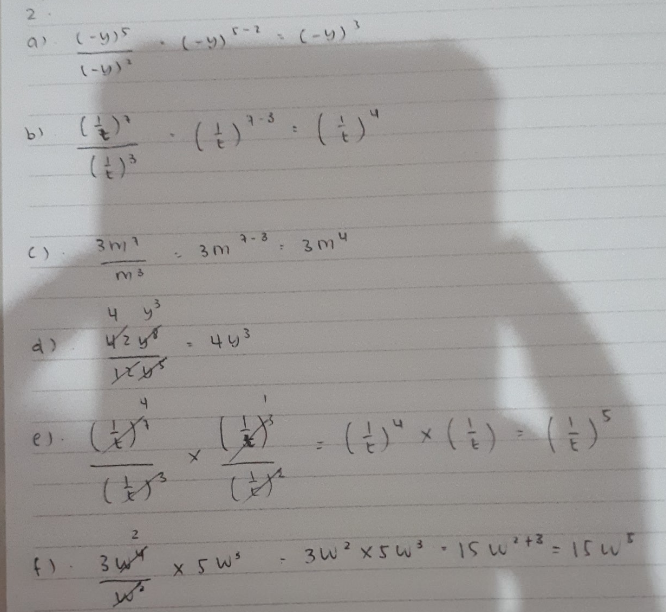 2.
a) (-y)⁵/(-y)² = (-y)⁵⁻² = (-y)³
b) (1/t)⁷/(1/t)³ = (1/t)⁷⁻³ = (1/t)⁴
c). 3m⁷/m³ = 3m⁷⁻³ = 3m⁴
4 y³
d) 42y⁸/12y⁵ = 4y³
4 1
e). (1/t)⁷/(1/t)³ × (1/t)³/(1/t)² = (1/t)⁴ × (1/t) = (1/t)⁵
2
f). 3w⁴/w² × 5w³ = 3w² × 5w³ = 15w²⁺³ = 15w⁵